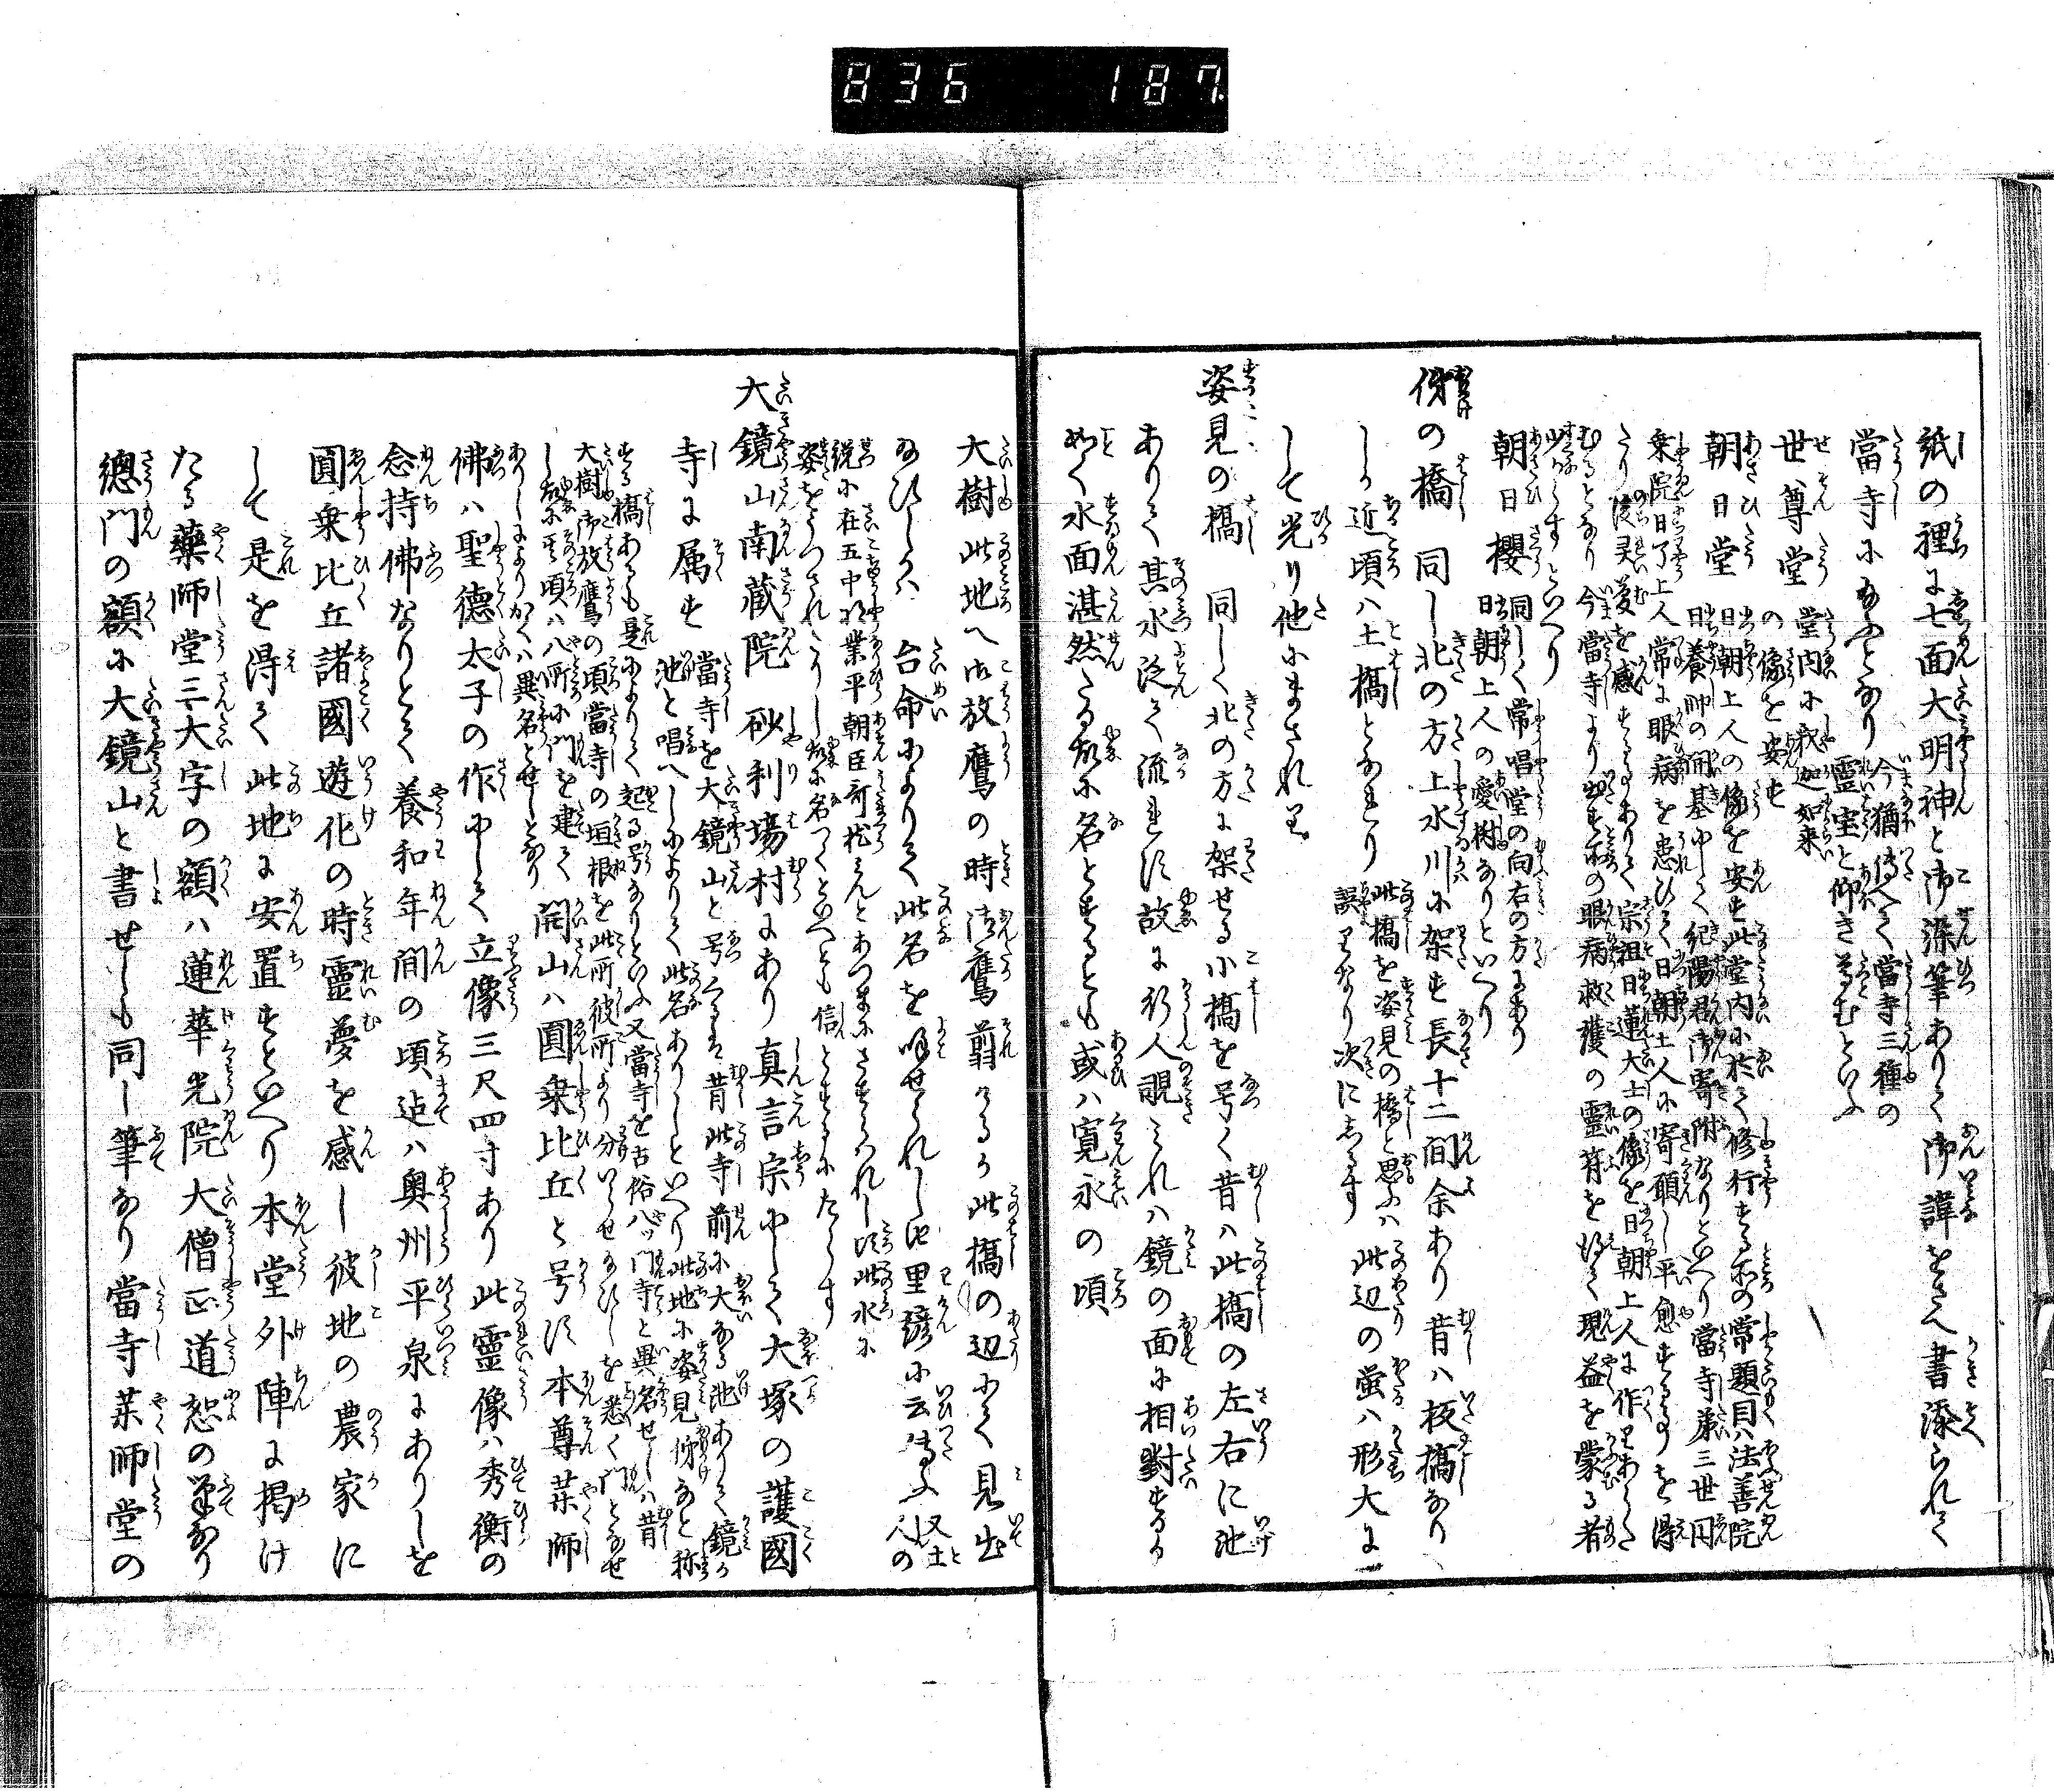 836 187.
紙の裡に七面大明神と御染筆ありて御諱をさへ書添られて
當寺にたまふとなり 今猶傳へて當寺三種の
霊宝と仰き尊むといふ
世尊堂 堂内に釈迦如来
の像を安す
朝日堂 日朝上人の像を安す此堂内に於て修行する所の常題目ハ法善院
日養師の開基にして紀陽君御寄附なりといへり當寺第三世円
乗院日了上人常に眼病を患ひて日朝上人に寄願し平愈する事を得
たり後灵夢を感する事ありて宗祖日蓮大士の像を日朝上人に作りあらた
むるとなり今當寺より出す所の眼病救護の靈符を得て現益を蒙る者
少からすといへり
朝日櫻 同しく常唱堂の向右の方にあり
日朝上人の愛樹なりといへり
俤の橋 同し北の方上水川に架す長十二間余あり昔ハ板橋なり
しか近頃ハ土橋となれり 此橋を姿見の橋と思ふハ
誤りなり次に志るす 此辺の蛍ハ形大に
して光り他にまされり
姿見の橋 同しく北の方に架せる小橋を号く昔ハ此橋の左右に池
ありて其水淀て流れす故に行人覗みれハ鏡の面に相對するか
如く水面湛然たる故に名とするとも或ハ寛永の頃
大樹此地へ御放鷹の時御鷹翦けるか此橋の辺にて見出
給ひしかハ 台命によりて此名を呼せられし由里諺に云傳ふ 又土人の
説に在五中将業平朝臣
姿をうつされたりし故に名つくといへとも信とするにたらす
大鏡山南蔵院 砂利場村にあり真言宗にして大塚の護國
寺に属す 當寺を大鏡山と号くるは昔此寺前に大なる池ありて鏡か
池と唱へしによりて此名ありしといへり此地に姿見俤なと称
する橋あるも是によりて起る号なりといふ又當寺を古俗八ッ門寺と異名せしハ昔
大樹御放鷹の頃當寺の垣根を此所彼所より分いらせ給ひしを悉く門となせ
し故に其頃ハ八所に門を建て
ありしによりかくハ異名とせしとなり 開山ハ圓乗比丘と号す本尊薬師
佛ハ聖德太子の作にして立像三尺四寸あり此靈像ハ秀衡の
念持佛なりとて養和年間の頃迠ハ奥州平泉にありしを
圓乗比丘諸國遊化の時靈夢を感し彼地の農家に
して是を得て此地に安置すといへり本堂外陣に掲け
たる藥師堂三大字の額ハ蓮華光院大僧正道恕の筆なり
總門の額に大鏡山と書せしも同し筆なり當寺薬師堂の